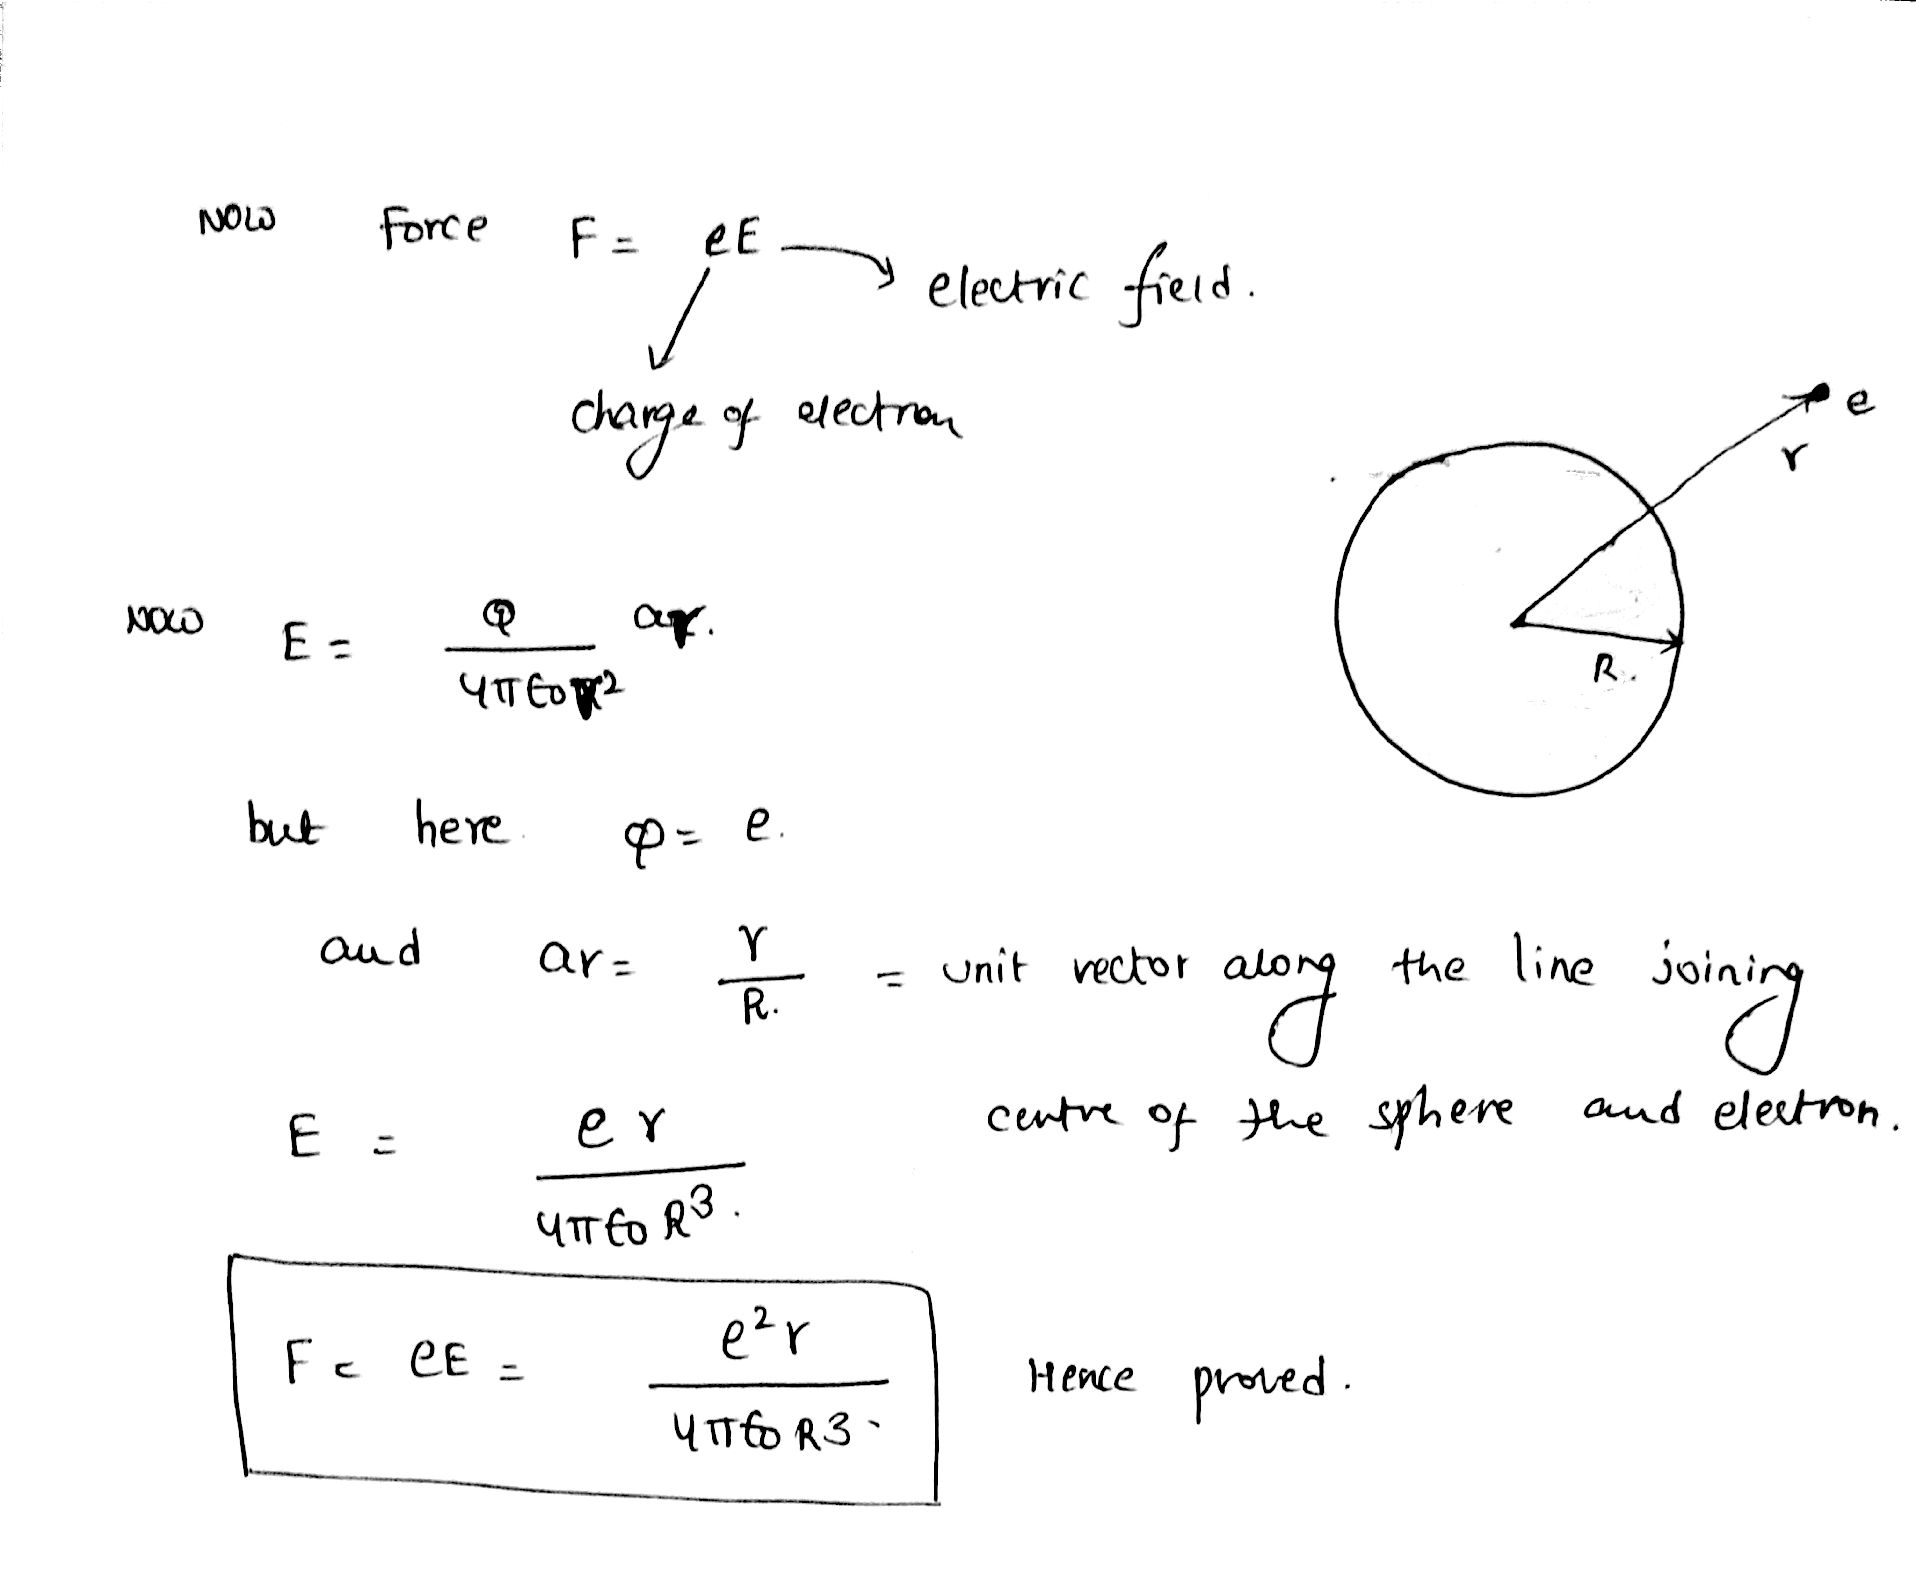 NOW Force F = eE → electric field.
charge of electron
e
r
R.
NOW E = Q / 4πε0r² ar.
but here φ = e.
and ar = r / R. = unit vector along the line joining
centre of the sphere and electron.
E = e r / 4πε0 R³.
F = eE = e²r / 4πε0 R3. Hence proved.